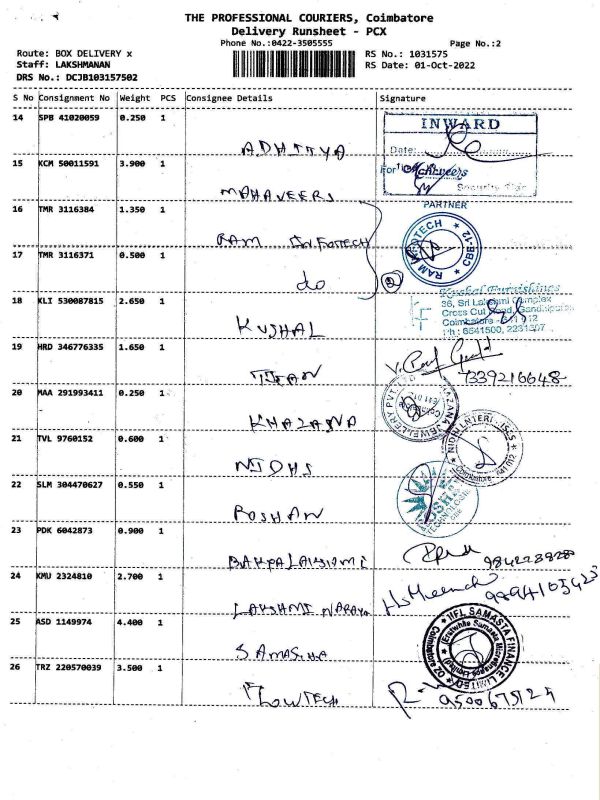 THE PROFESSIONAL COURIERS, Coimbatore
Delivery Runsheet - PCX
Phone No.:0422-3505555
Page No.:2
Route: BOX DELIVERY x
RS No.: 1031575
Staff: LAKSHMANAN
RS Date: 01-Oct-2022
DRS No.: DCJB103157502
S No Consignment No Weight PCS Consignee Details Signature
14 SPB 41020059 0.250 1 ADHITYA
INWARD
Date:
15 KCM 50011591 3.900 1 MAHAVEERS
For Mahaveers
Security Sign
16 TMR 3116384 1.350 1 RAM INFOTECH
PARTNER
RAM INFOTECH CBE-12
17 TMR 3116371 0.500 1 do
2
18 KLI 530087815 2.650 1 KUSHAL
Kushal Furnishings
36, Sri Lakshmi Complex
Cross Cut Road, Gandhipuram
Coimbatore - 641 012
Ph: 6541500, 2231307
19 HRD 346776335 1.650 1 TITAN
7339216648
20 MAA 291993411 0.250 1 KHAZANA
-
KHAZANA JEWELLERY PVT LTD
21 TVL 9760152 0.600 1 NIDHI
Coimbatore
22 SLM 304470627 0.550 1 ROSHAN
23 PDK 6042873 0.900 1
24 KMU 2324810 2.700 1 LAKSHMI NARAYA
25 ASD 1149974 4.400 1 SAMASTHA
IIFL SAMASTA FINANCE LIMITED
Coimbatore
26 TRZ 220570039 3.500 1 FLOWTECH